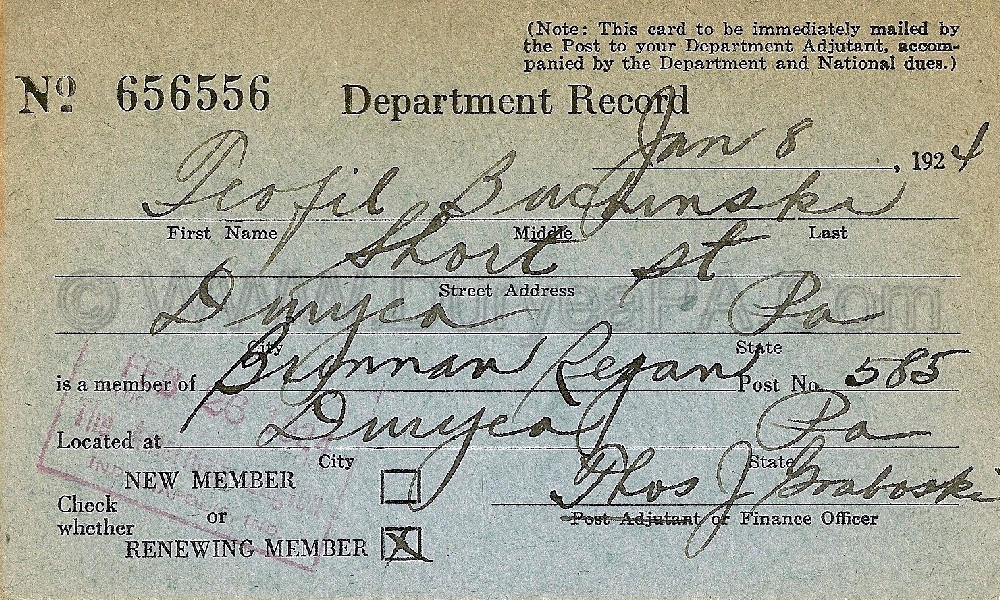 (Note: This card to be immediately mailed by
the Post to your Department Adjutant, accom-
panied by the Department and National dues.)
Nº 656556 Department Record
Jan 8, 1924
Teofil Buczinski
First Name Middle Last
Short St
Street Address
© WWW.DuryeaPA.com
Duryea Pa
City State
is a member of Brennan Regan Post No. 585
Located at Duryea Pa
City State
FEB 23
The
NEW MEMBER
Check
whether
or
RENEWING MEMBER X
Thos J Graboske
Post Adjutant or Finance Officer